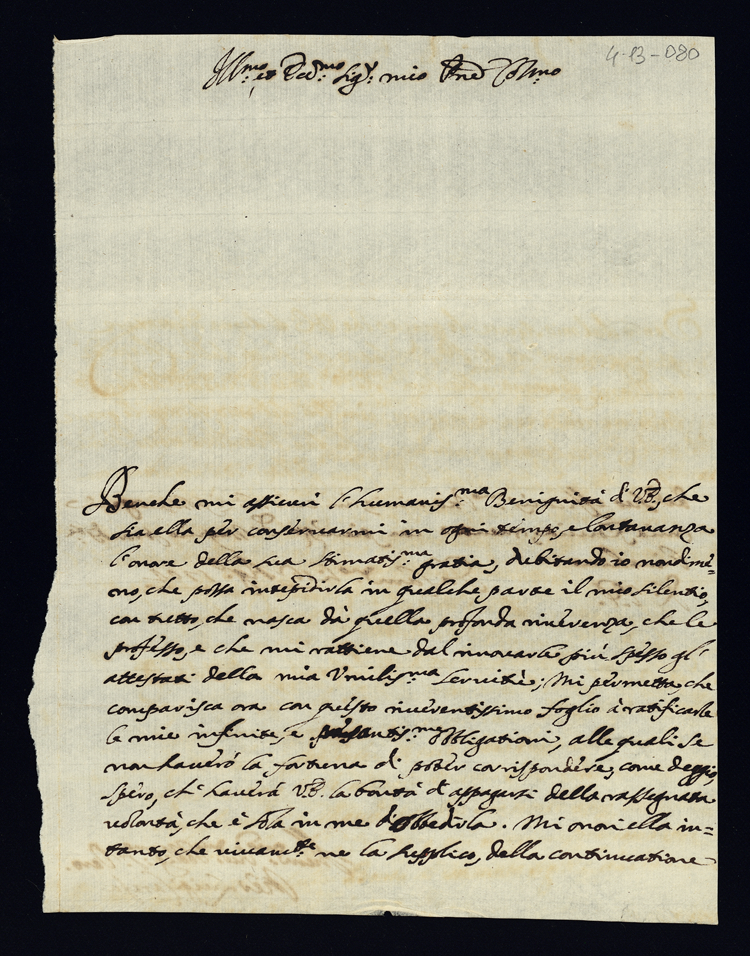 4-13-D80
Ill.mo et Ecc.mo Sig.r mio Pne Colmo
Benche mi assicuri l'humaniss.ma Benignità di V.E., che
sia ella per conservarmi in ogni tempo, e lontananza
l'onore della sua stimatis.ma gratia, dubitando io nondime=
no, che possa intepidirla in qualche parte il mio silentio,
con tutto, che nasca dà quella profonda riverenza, che le
professo, e che mi rattiene dal rinovarle più spesso gl'
attestati della mia Umilis.ma servitù; Mi permetta, che
comparisca ora con questo riverentissimo foglio à ratificarle
le mie infinite, e pesantis.me obligationi, alle quali se
non haverò la fortuna di poter corrispondere, come deggio,
spero, ch'haverà V.E. la bontà d'appagarsi della rassegnata
volontà, che è sola in me d'obbedirla. Mi onori ella in=
tanto, che vivam.te ne la supplico, della continuatione